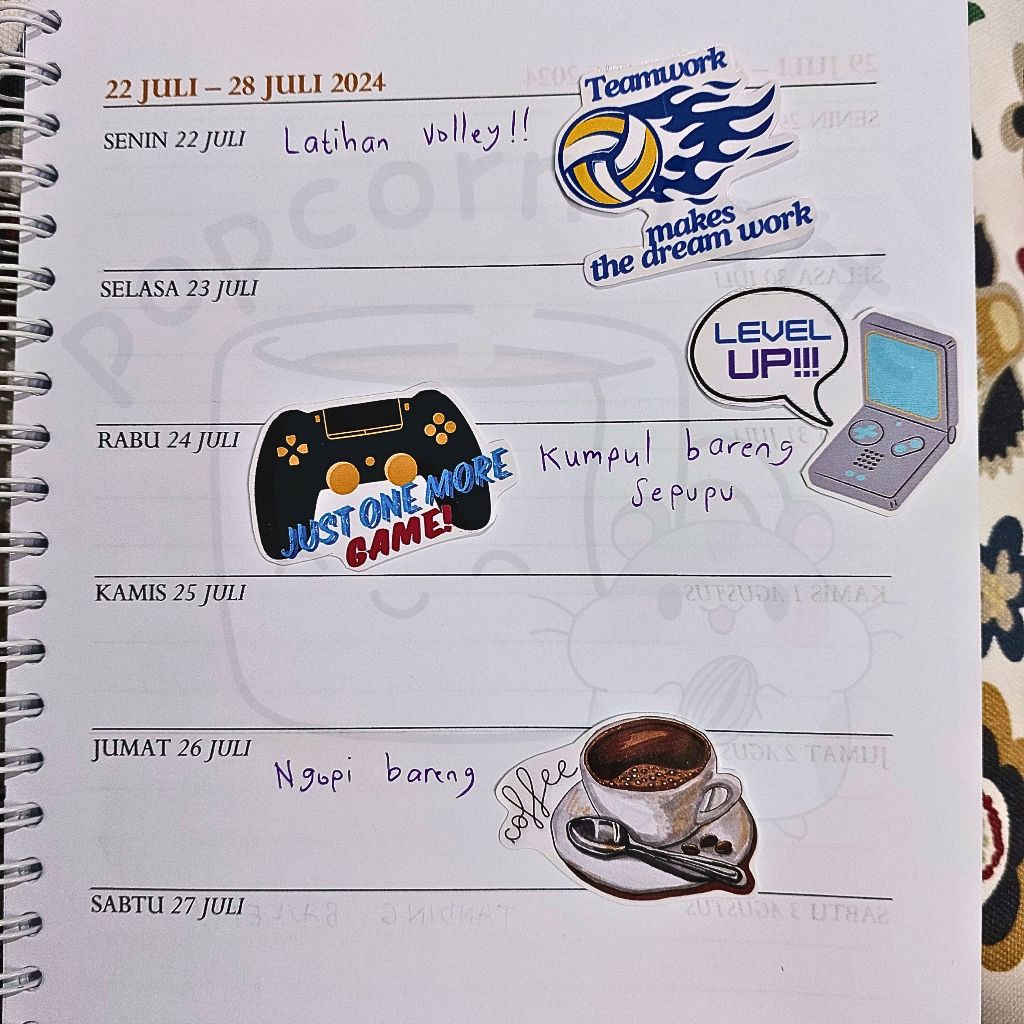 22 JULI – 28 JULI 2024
SENIN 22 JULI
Latihan Volley!!
Teamwork
makes
the dream work
popcorn
SELASA 23 JULI
LEVEL
UP!!!
RABU 24 JULI
JUST ONE MORE
GAME!
Kumpul bareng
Sepupu
KAMIS 25 JULI
JUMAT 26 JULI
Ngopi bareng
coffee
SABTU 27 JULI